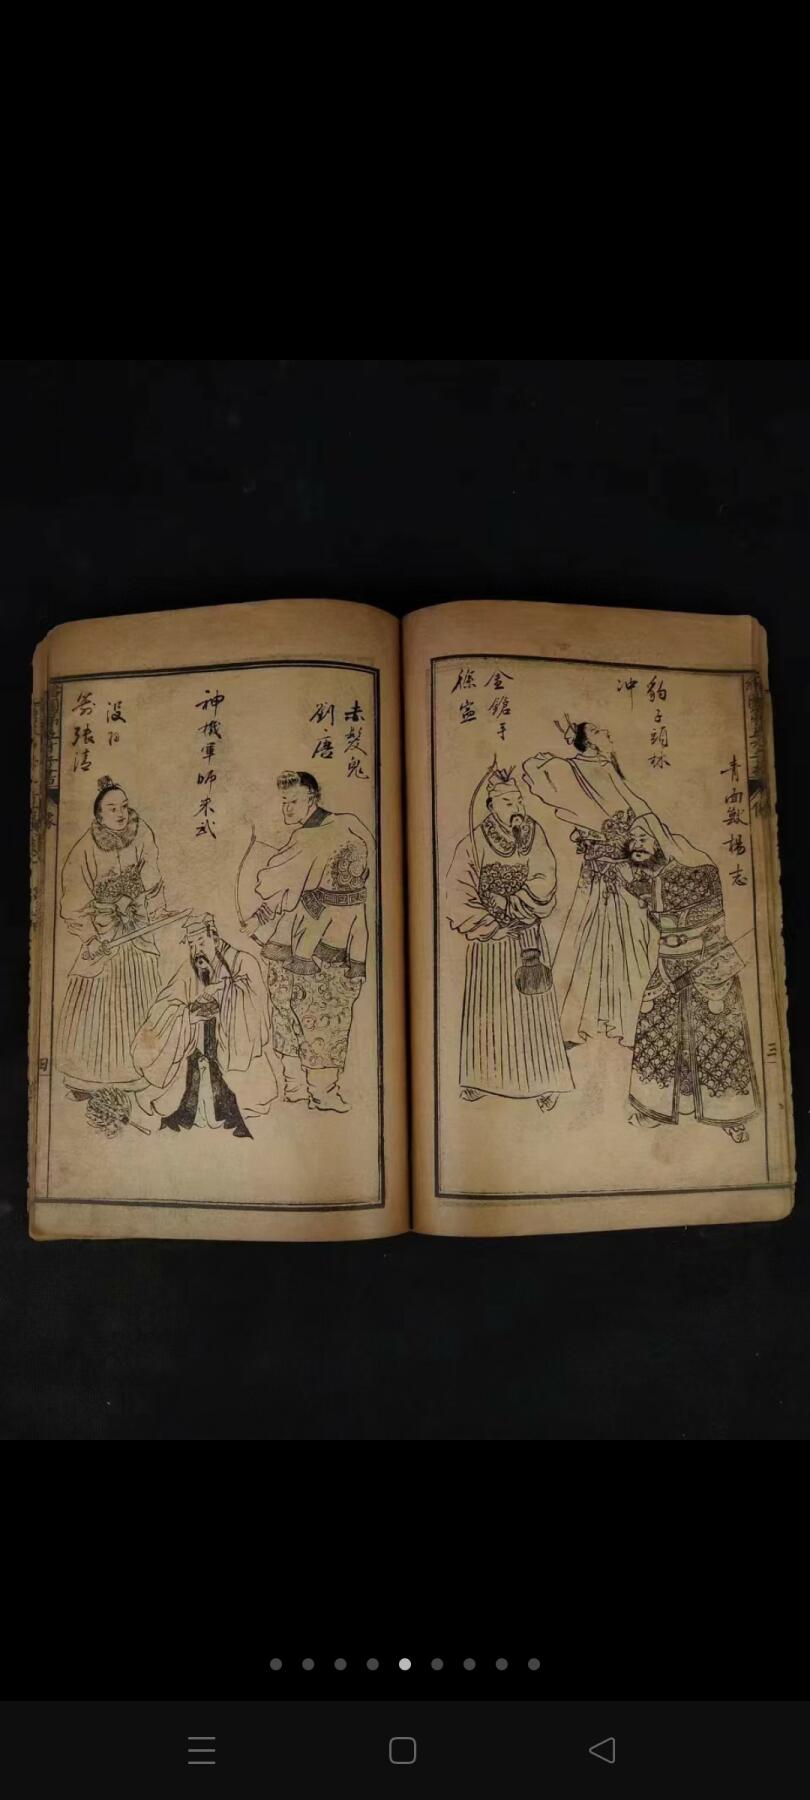 豹子頭林
冲
青面獸楊志
金鎗手
徐寧
赤髮鬼
劉唐
神機軍師朱武
没羽
箭張清
三
四